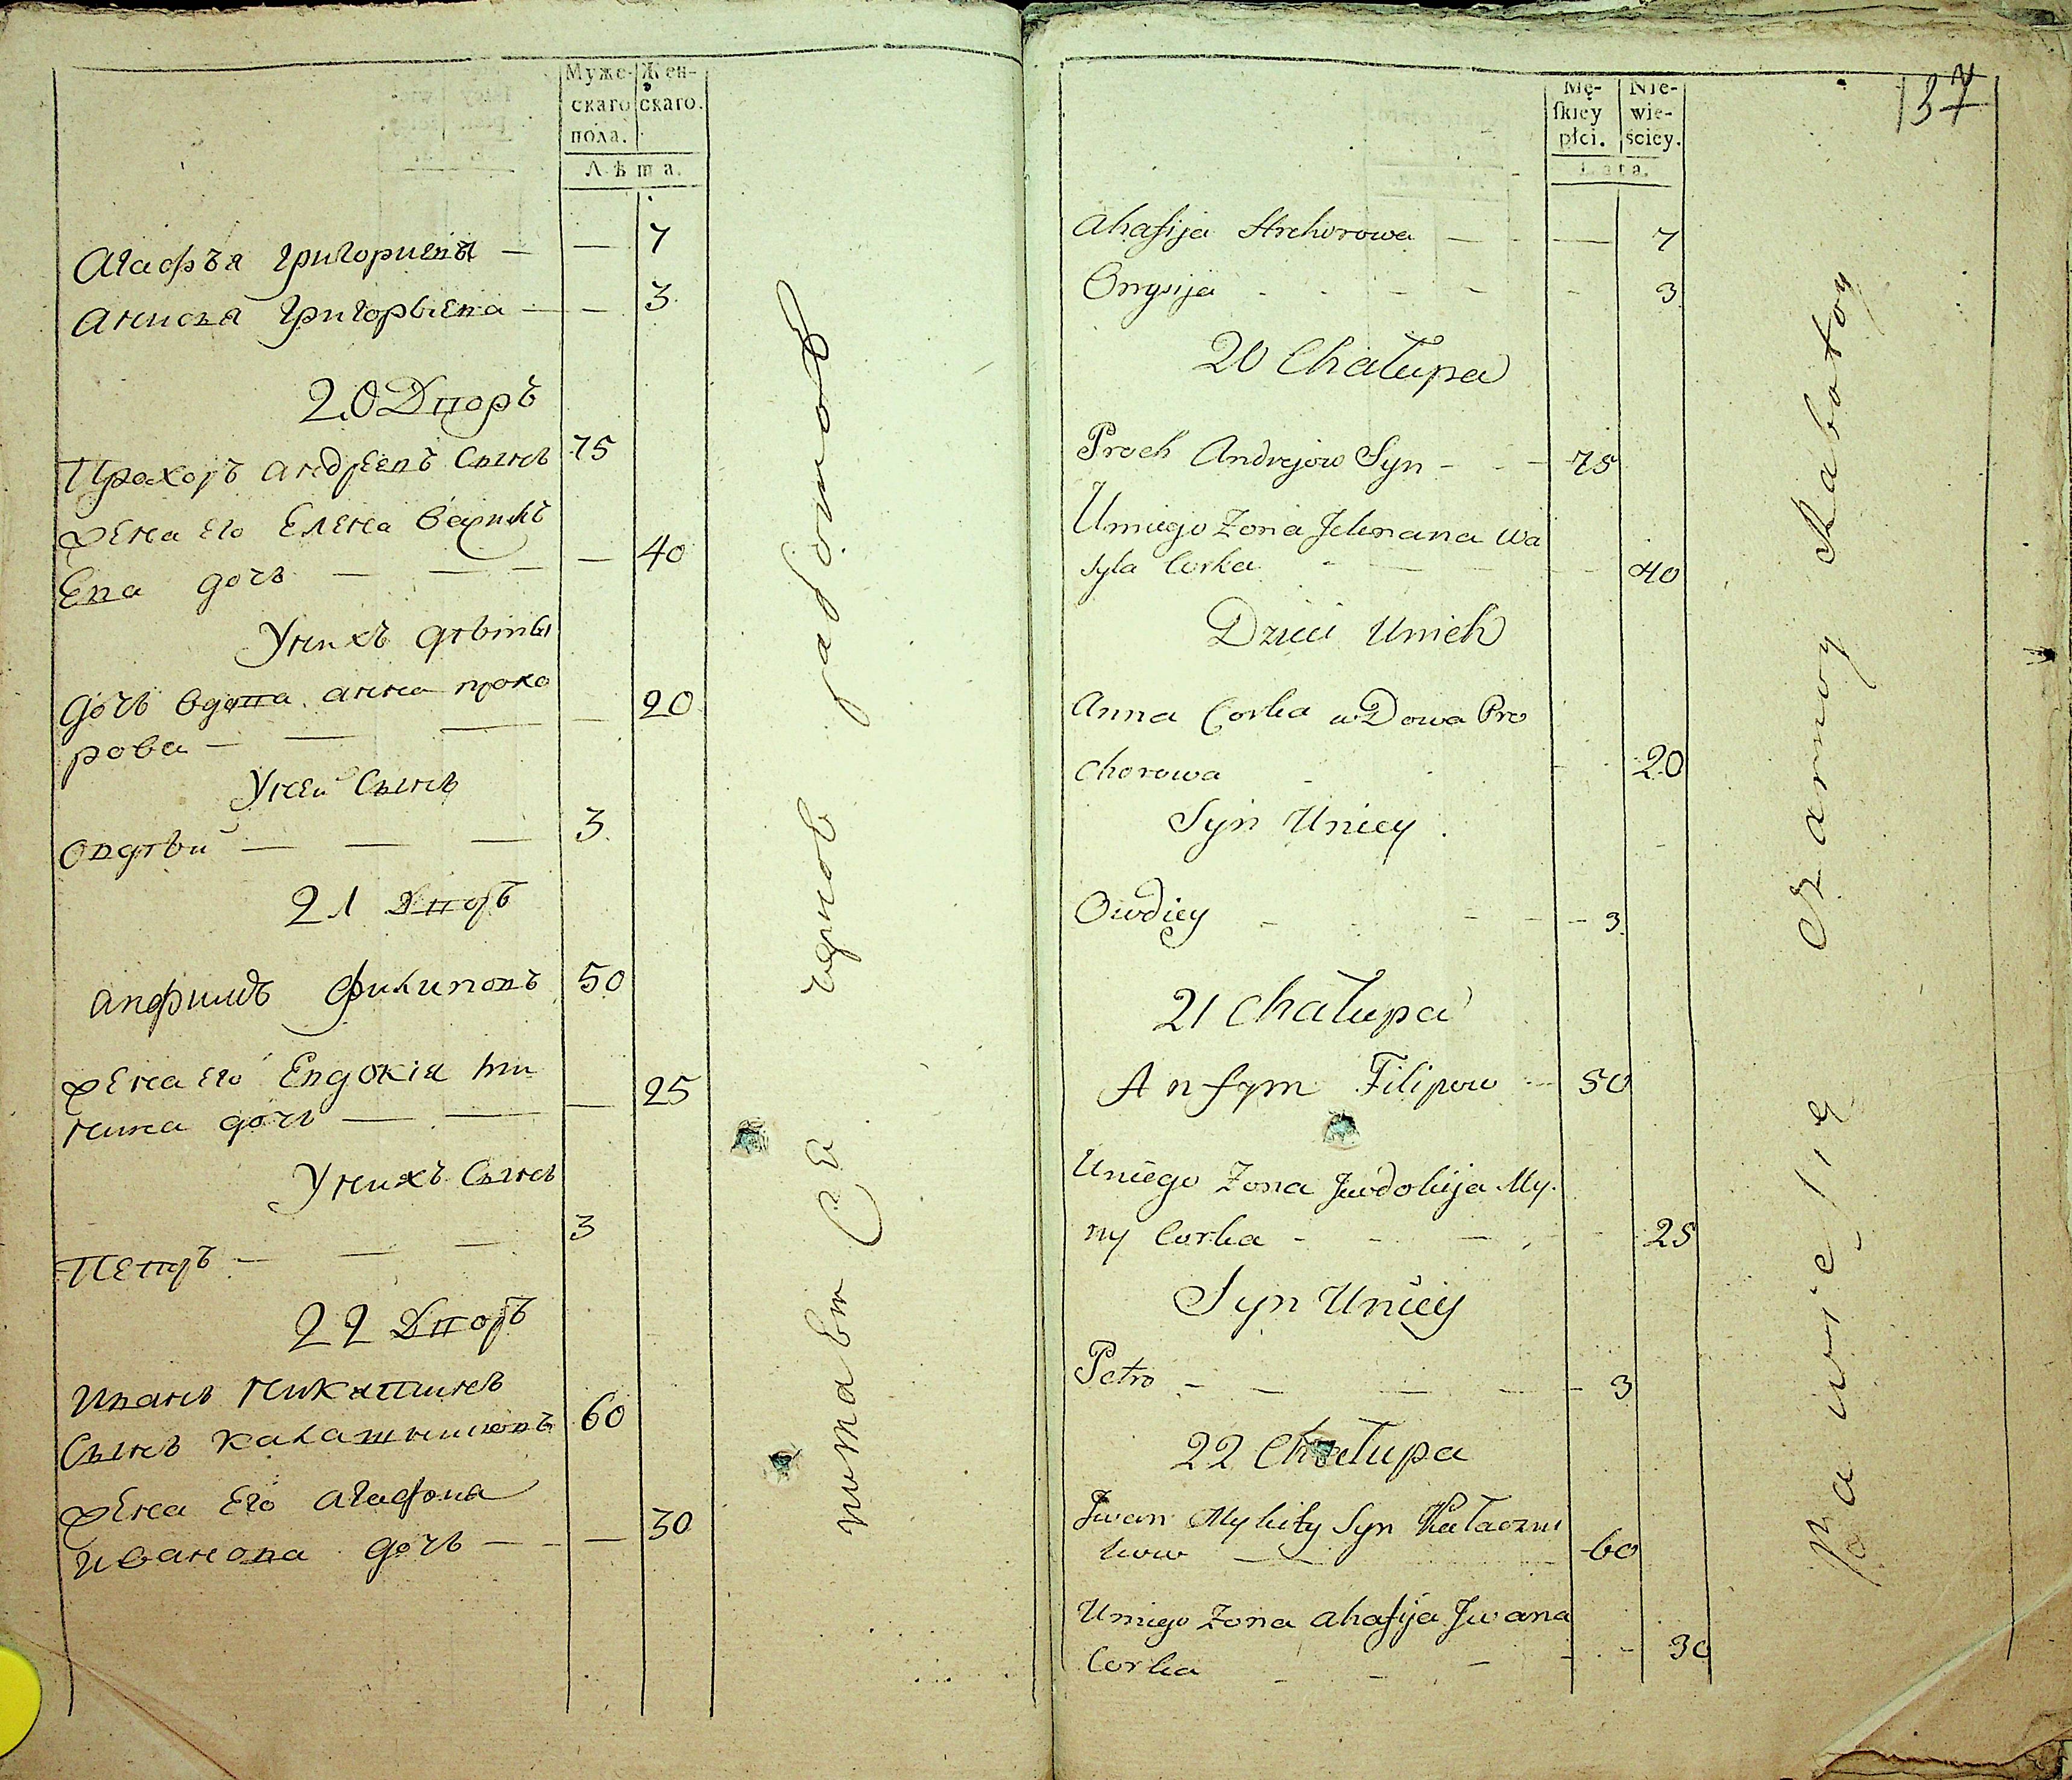 Муже-
скаго
пола.
Жен-
скаго.
Лѣта.
Агафья Григориева — — 7
Анисья Григорьева — — 3
20 Дворъ
Прохоръ Андреевъ Сынъ 75
Жена его Елена Васильъ
Ева дочь — — — — 40
У нихъ дѣти
Дочь вдова Анна прохо
рова — — — — 20
У ней Сынъ
Овдѣй — — — 3
21 Дворъ
Анфимъ Филиповъ 50
Жена его Евдокія Ми
нина дочь — — — 25
У нихъ Сынъ
Петръ — — — 3
22 Дворъ
Иванъ Никитинъ
Сынъ Калашниковъ 60
Жена Его Агафья
Иванова дочь — — — 30
питает Се черной работой
137
Mę-
skiey
płci.
Nie-
wie-
sciey.
Lata.
Ahafija Hrehorowa — — 7
Onysija - - - - - 3
20 Chałupa
Proch Andrejow Syn - - - 75
Uniego Zona Jelenana Wa
syla Corka - - - 40
Dzieci Unich
Anna Corka wDowa Pro
chorowa - - - 20
Syn Uniey
Owdiey - - - - 3
21 Chałupa
Anfym Filipow - 50
Uniego Zona Jewdokija My-
ny Corka - - - 25
Syn Uniey
Petro - - - - 3
22 Chałupa
Jwan Mykity Syn Kałaczni
kow — - 60
Uniego Zona Ahafija Jwana
Corka - - - - 30
Bawi się Czarnoy Rabotoy